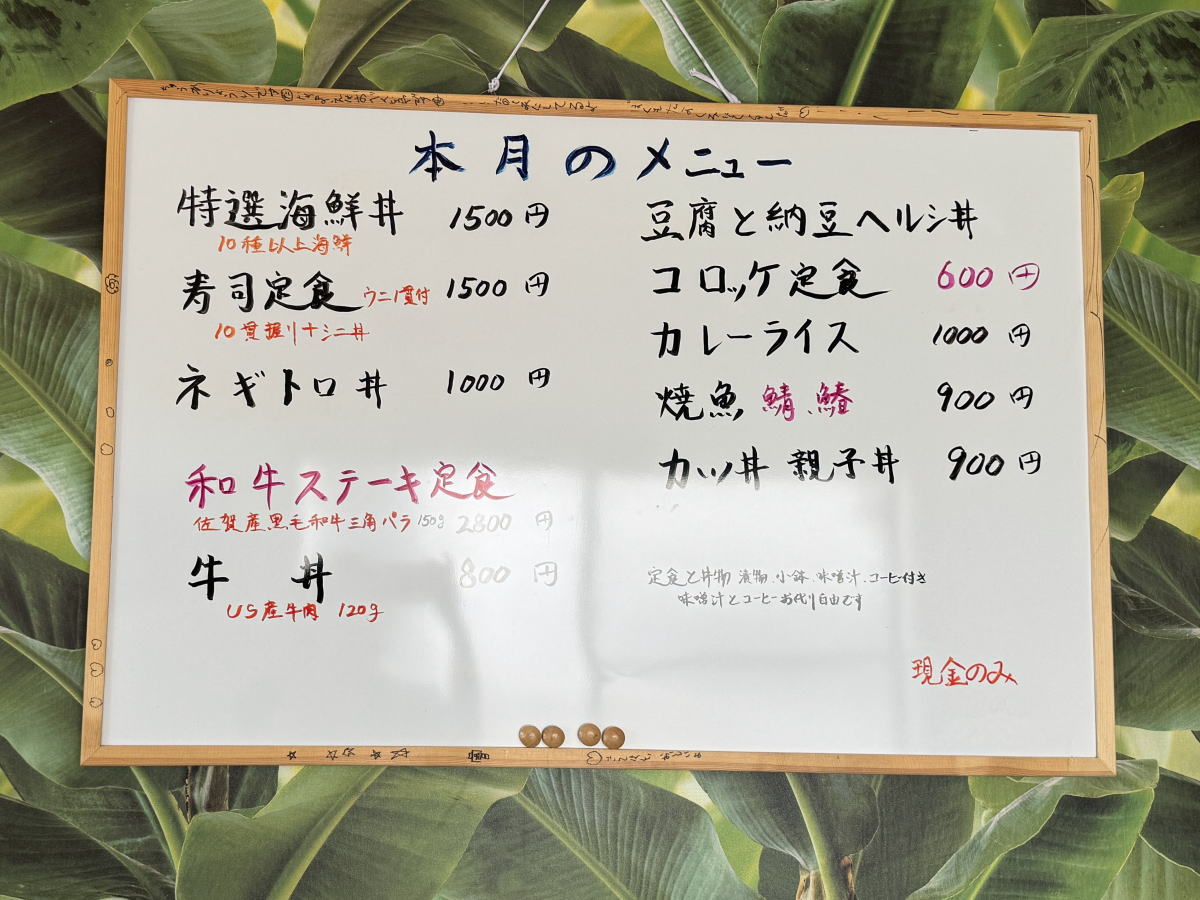 本月のメニュー
特選海鮮丼 1500円
10種以上海鮮
寿司定食 ウニ1貫付 1500円
10貫握り+ミニ丼
ネギトロ丼 1000円
和牛ステーキ定食
佐賀産黒毛和牛三角バラ150g 2800円
牛丼 800円
US産牛肉 120g
豆腐と納豆ヘルシ丼
コロッケ定食 600円
カレーライス 1000円
焼魚 鯖、鰆 900円
カツ丼 親子丼 900円
定食と丼物 漬物、小鉢、味噌汁、コーヒー付き
味噌汁とコーヒーお代り自由です
現金のみ